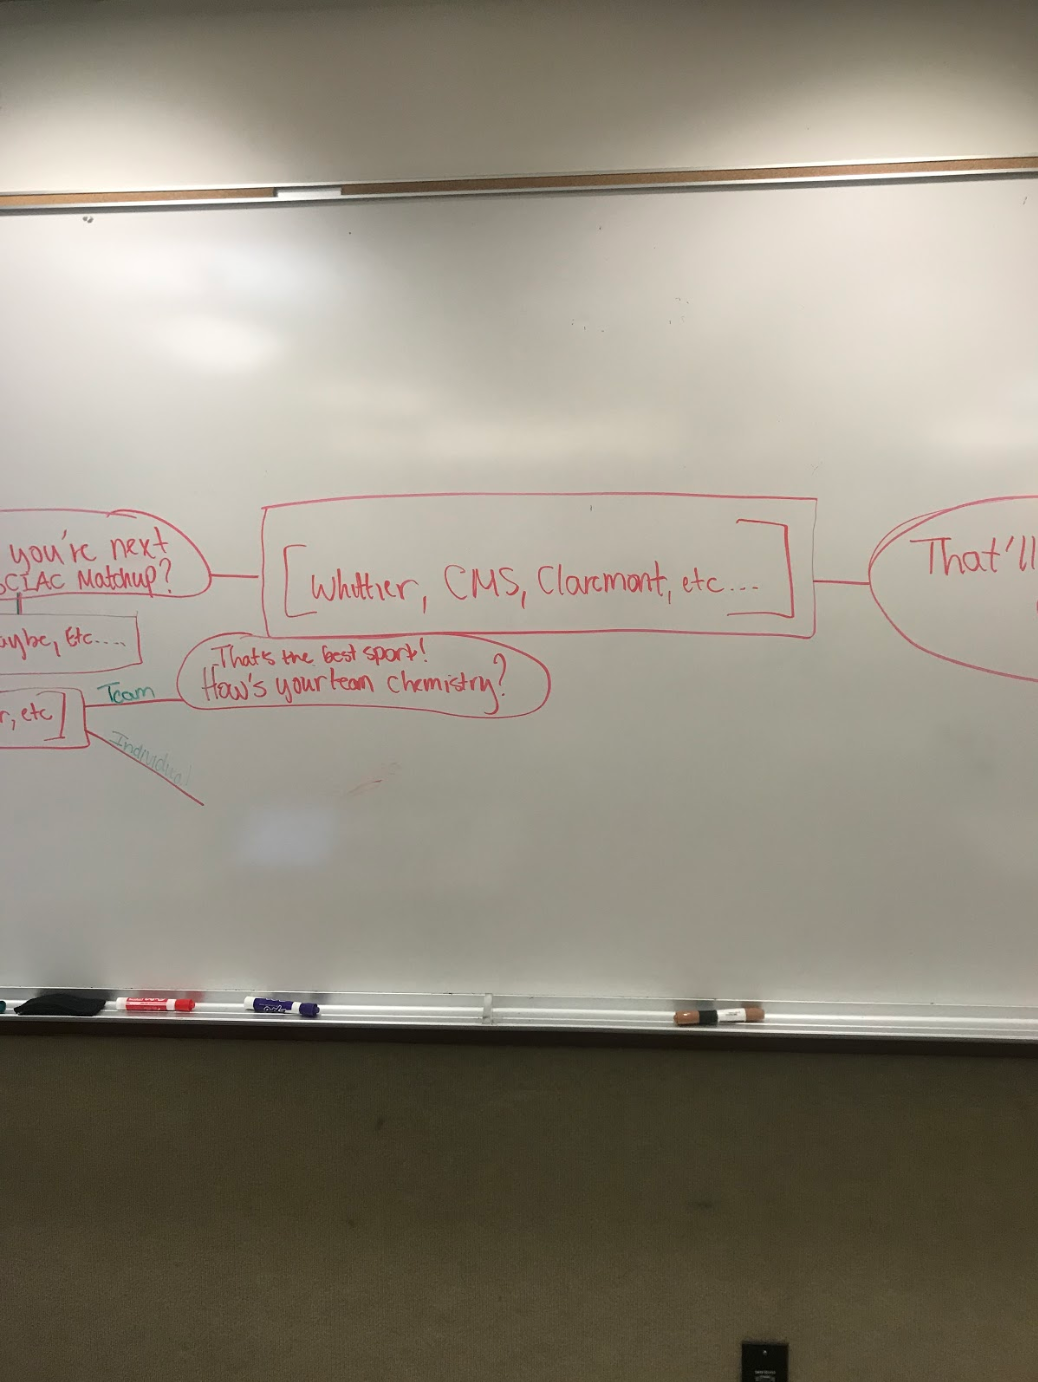 you're next
SCIAC Matchup?
[Whittier, CMS, Claremont, etc....]
That'll
aybe, Etc....
That's the best sport!
How's your team chemistry?
Team
r, etc]
Individual